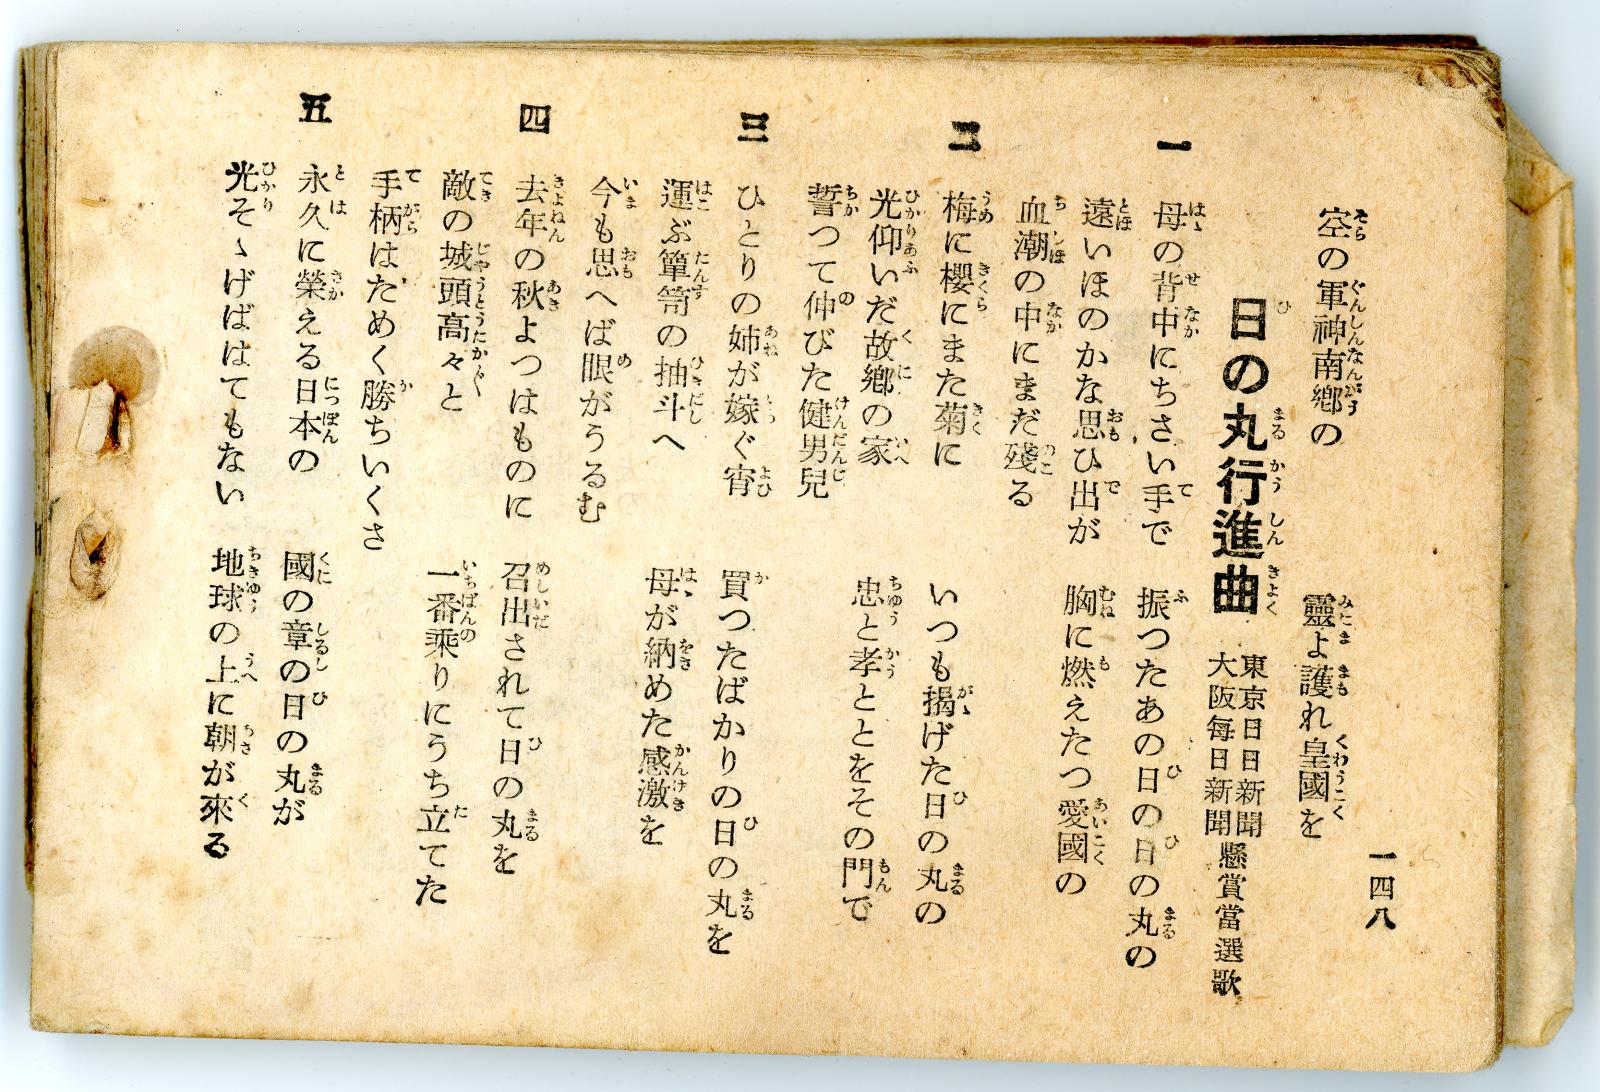 空の軍神南鄕の　靈よ護れ皇國を
一四八
日の丸行進曲
東京日日新聞
大阪每日新聞
懸賞當選歌
一　母の背中にちさい手で　振つたあの日の日の丸の
遠いほのかな思ひ出が　胸に燃えたつ愛國の
血潮の中にまだ殘る
二　梅に櫻にまた菊に　いつも揭げた日の丸の
光仰いだ故鄕の家　忠と孝ととをその門で
誓つて伸びた健男兒
三　ひとりの姉が嫁ぐ宵　買つたばかりの日の丸を
運ぶ簞笥の抽斗へ　母が納めた感激を
今も思へば眼がうるむ
四　去年の秋よつはものに　召出されて日の丸を
敵の城頭高々と　一番乘りにうち立てた
手柄はためく勝ちいくさ
五　永久に榮える日本の　國の章の日の丸が
光そゝげばはてもない　地球の上に朝が來る